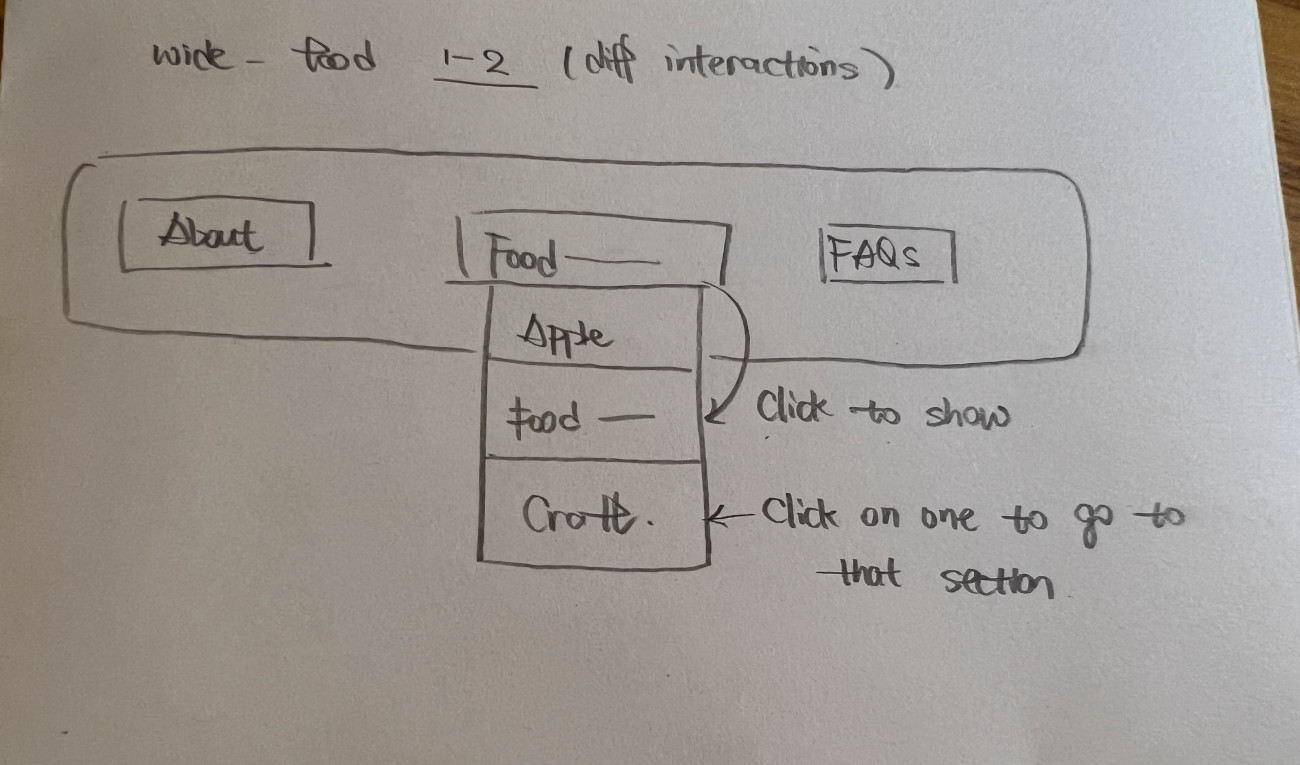 wide - food 1-2 (diff interactions)
About
Food
FAQs
Apple
food
Click to show
Craft.
Click on one to go to
that section